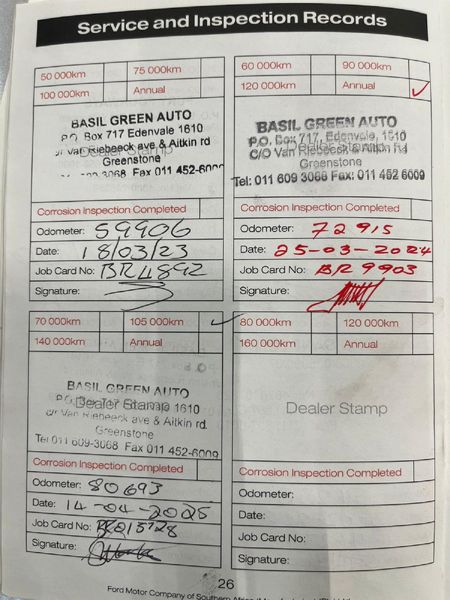 Service and Inspection Records
50 000km 75 000km
100 000km Annual
BASIL GREEN AUTO
P.O. Box 717 Edenvale 1610
Dealer Stamp
c/r Van Riebeeck ave & Aitkin rd
Greenstone
3068 Fax 011 452-6009
Corrosion Inspection Completed
Odometer: 59906
Date: 18/03/23
Job Card No: BR4892
Signature:
60 000km 90 000km
120 000km Annual ✓
BASIL GREEN AUTO
P.O. Box 717, Edenvale, 1610
Dealer Stamp
C/O Van Riebeeck & Aitkin Rd
Greenstone
Tel: 011 609 3068 Fax: 011 452 6009
Corrosion Inspection Completed
Odometer: 72915
Date: 25-03-2024
Job Card No: BR 9903
Signature:
70 000km 105 000km ✓
140 000km Annual
BASIL GREEN AUTO
P.O. Box 717 Edenvale 1610
Dealer Stamp
c/r Van Riebeeck ave & Aitkin rd
Greenstone
Tel 011 609-3068 Fax 011 452-6009
Corrosion Inspection Completed
Odometer: 80693
Date: 14-04-2025
Job Card No:
Signature:
80 000km 120 000km
160 000km Annual
Dealer Stamp
Corrosion Inspection Completed
Odometer:
Date:
Job Card No:
Signature:
26
Ford Motor Company of Southern Africa